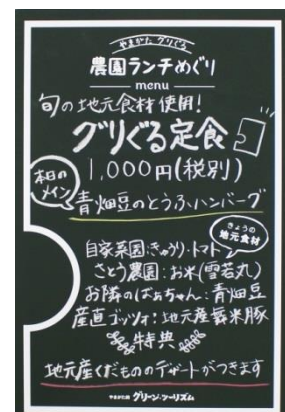 やまがた グリぐる
農園ランチめぐり
menu
旬の地元食材使用!
グリぐる定食
1,000円(税別)
本日の
メイン
青畑豆のとうふハンバーグ
きょうの
地元食材
自家菜園:きゅうり・トマト
さとう農園:お米(雪若丸)
お隣のばぁちゃん:青畑豆
産直ゴッツォ:地元産舞米豚
特典
地元産くだもののデザートがつきます
やまがた的 グリーン・ツーリズム